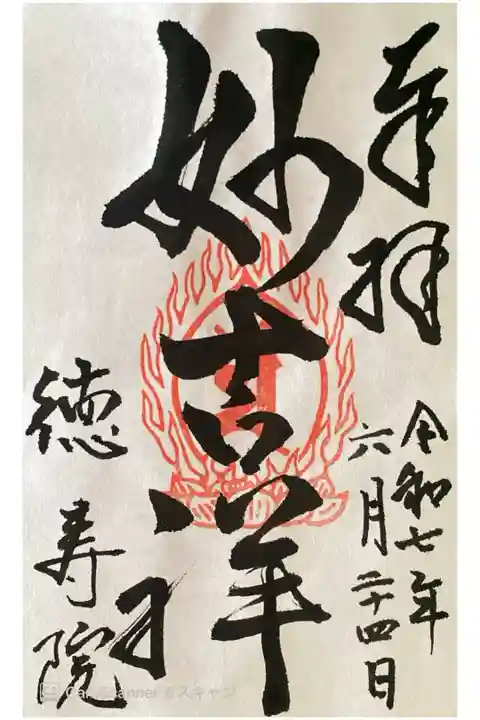 奉拝
令和七年
六月二十四日
妙吉祥
徳寿院
CamScanner でスキャン